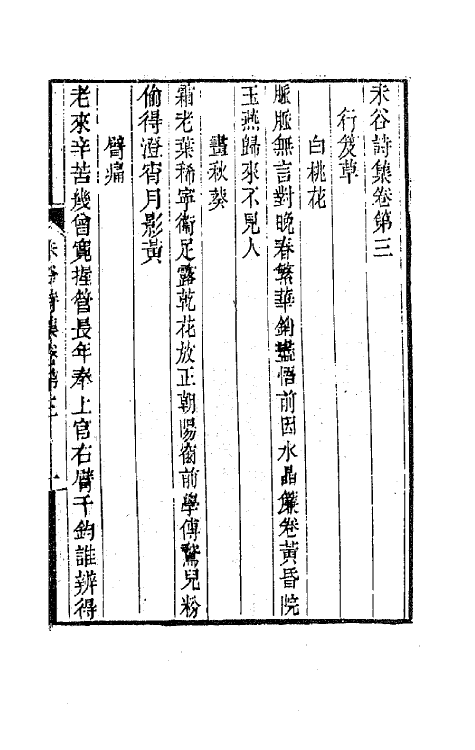 未谷詩集卷第三
行笈草
白桃花
脈脈無言對晚春繁華銷盡悟前因水晶簾卷黃昏院
玉燕歸來不見人
畫秋葵
霜老葉稀寧衞足露乾花放正朝陽窗前學傅鵞兒粉
偷得澄宵月影黃
臂痛
老來辛苦幾曾寬握管長年奉上官右臂千鈞誰辨得
未谷詩集卷第三 一